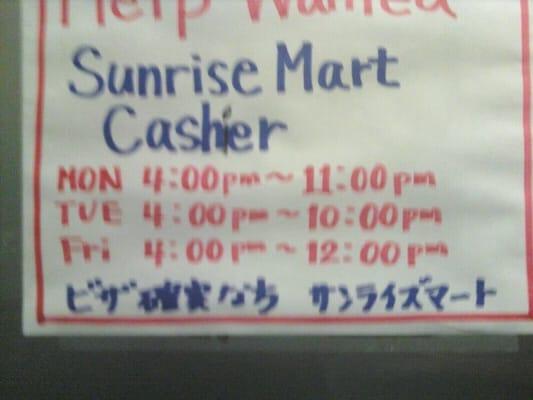 Help Wanted
Sunrise Mart
Cashier
MON 4:00pm~11:00pm
TUE 4:00pm~10:00pm
Fri 4:00pm~12:00pm
ビザ確実なら サンライズマート